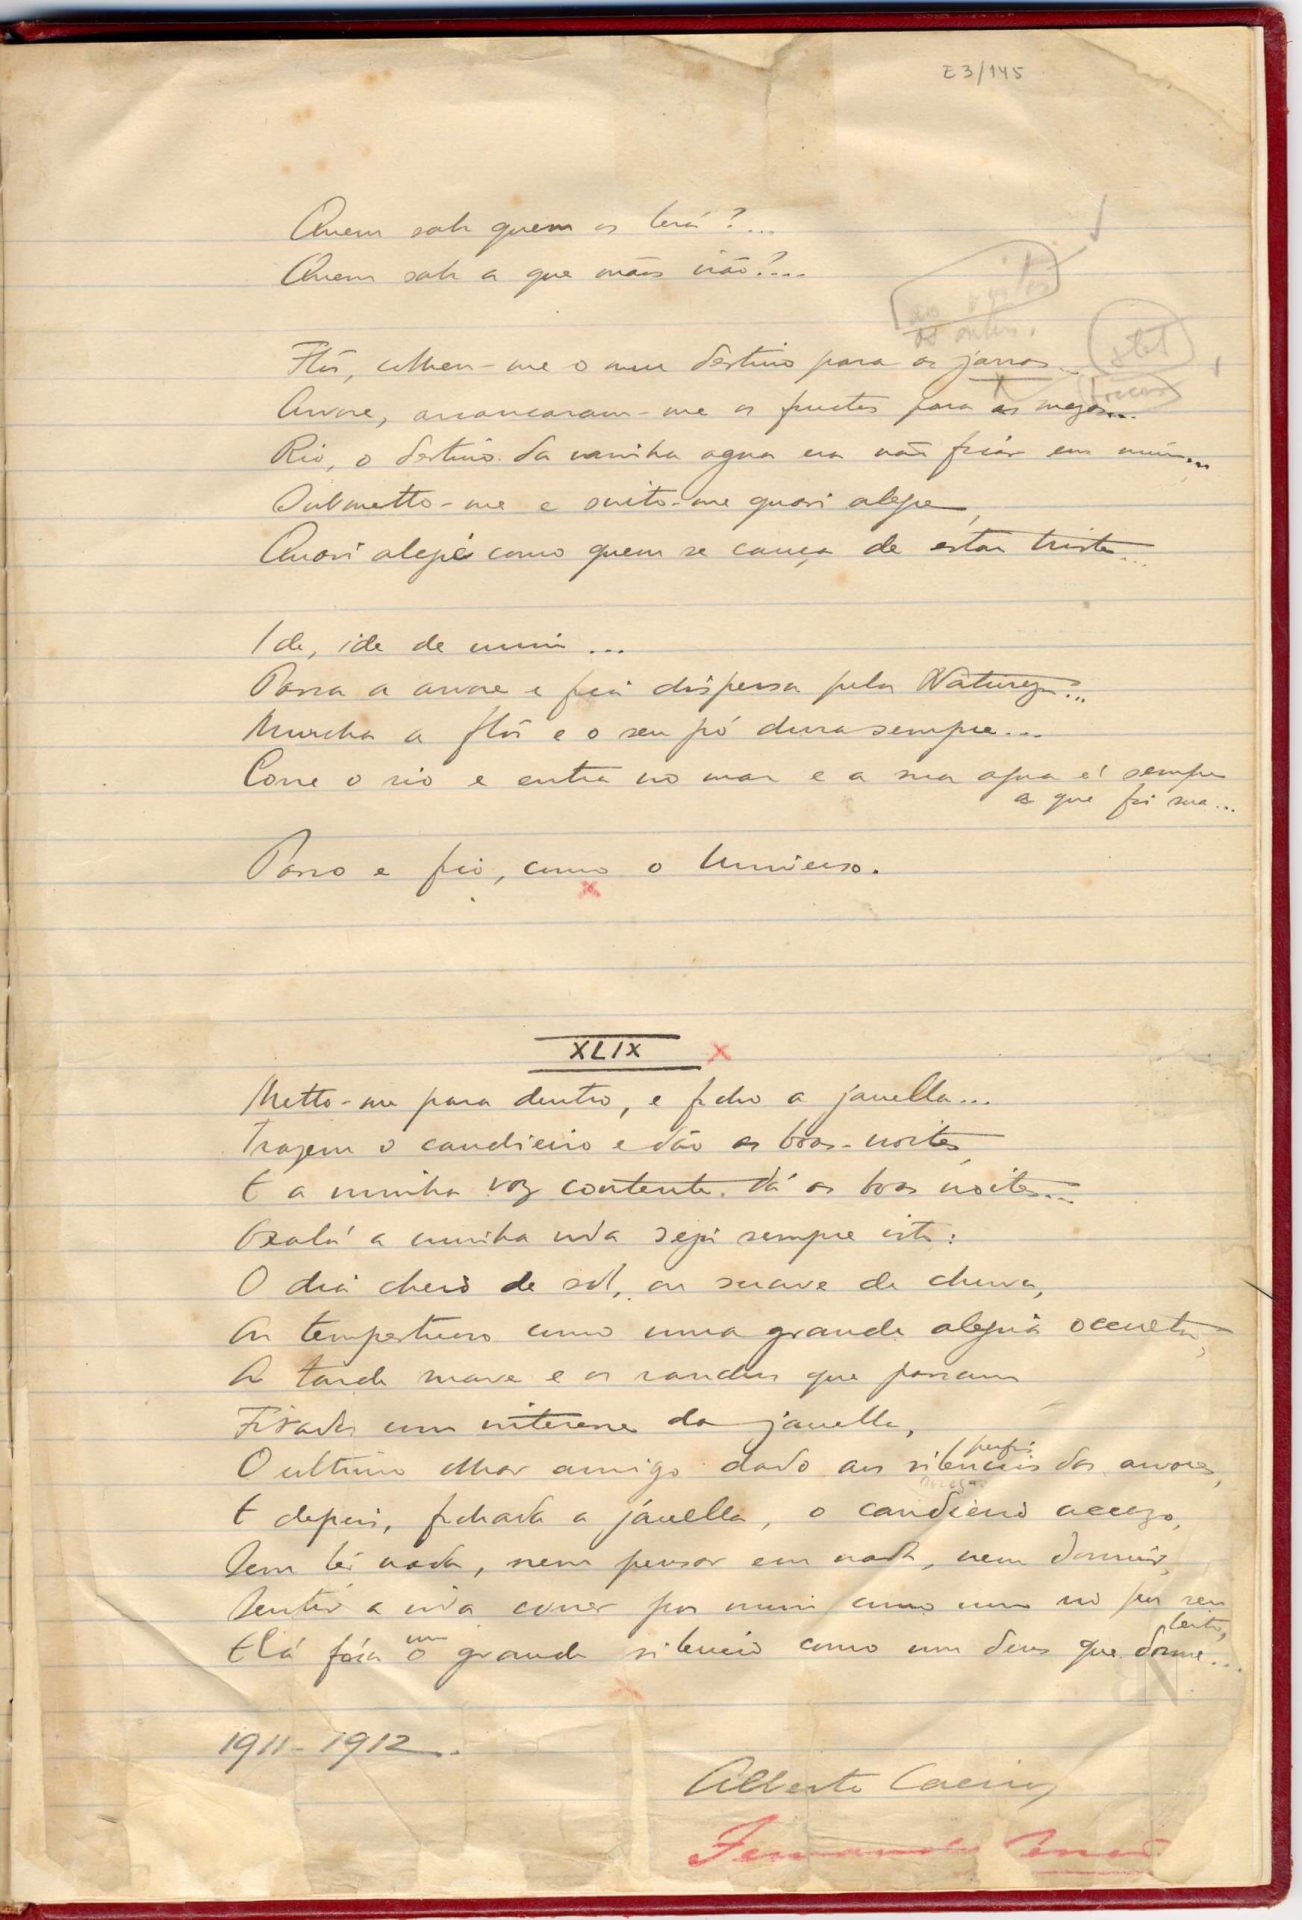 E3/145
Quem sabe quem os lerá?...
Quem sabe a que mãos irão?...
os outros.
stet
Flôr, colheu-me o meu destino para os jarros...
Arvore, arrancaram-me os fructos para as mezas...
Rio, o destino da minha agua era não ficar em mim...
Submetto-me e sinto-me quasi alegre,
Quasi alegre como quem se cança de estar triste...
Ide, ide de mim...
Passa a arvore e fica dispersa pela Natureza...
Murcha a flôr e o seu pó dura sempre...
Corre o rio e entra no mar e a sua agua é sempre
a que foi sua...
Passo e fico, como o Universo.
x
XLIX x
Metto-me para dentro, e fecho a janella...
Trazem o candieiro e dão as boas-noites,
E a minha voz contente dá as boas noites...
Oxalá a minha vida seja sempre isto:
O dia cheio de sol, ou suave de chuva,
Ou tempestuoso como uma grande alegria occulta,
A tarde suave e os ranchos que passam
Fitados com interesse da janella,
perfis
O ultimo olhar amigo dado aos silencios das arvores,
E depois, fechada a janella, o candieiro accezo,
Sem lêr nada, nem pensar em nada, nem dormir,
Sentir a vida correr por mim como um rio por seu
leito,
um
E lá fóra o grande silencio como um deus que dorme...
x
1911-1912.
Alberto Caeiro,
Fernando Pessoa
BN